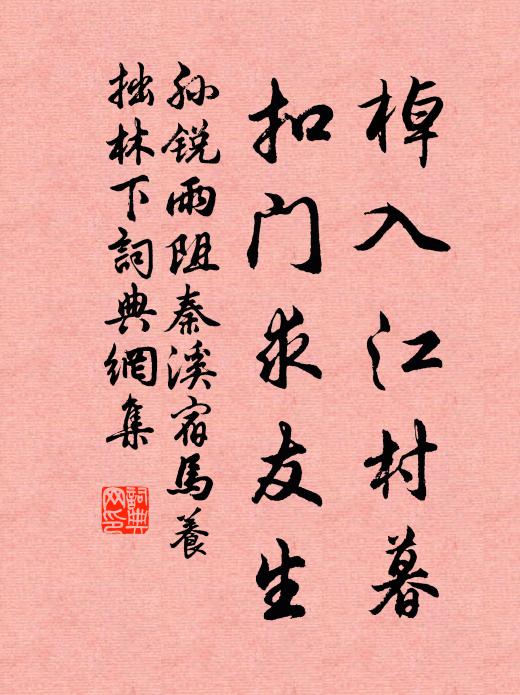 棹入江村暮
扣门求友生
孙锐雨阻秦溪宿馬養
拙林下詞典網集
詞典
网印